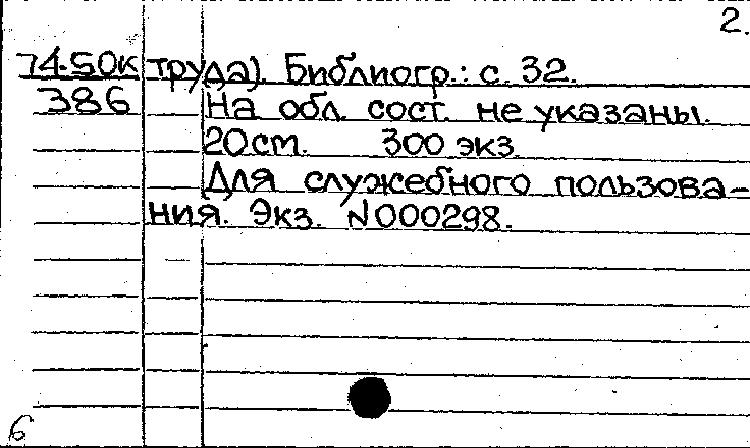 2.
74-50к труда). Библиогр.: с. 32.
386 На обл. сост. не указаны.
20см. 300 экз.
Для служебного пользова-
ния. Экз. N000298.
6